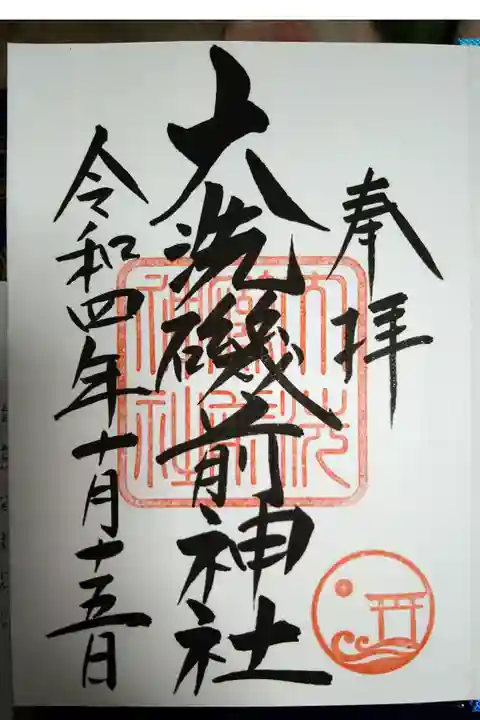 奉拝
大洗磯前神社
令和四年十月十五日
大洗
磯前
神社